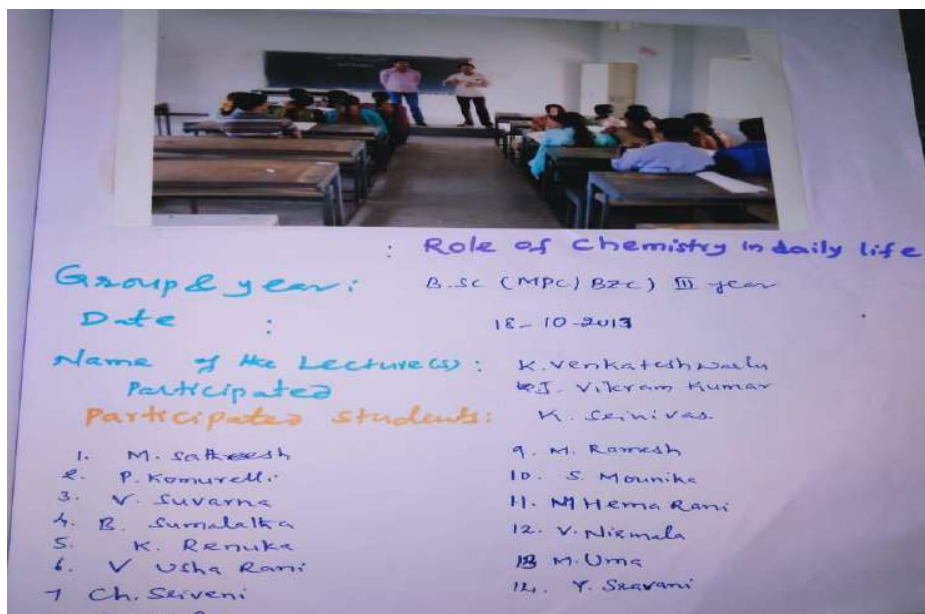 : Role of Chemistry in daily life
Group & year : B.Sc (MPC/BZC) III year
Date : 18-10-2013
Name of the Lecture(s) : K. Venkateshwarlu
Participated J. Vikram Kumar
Participated Students : K. Srinivas.
1. M. Satheesh
2. P. Komurelli
3. V. Suvarna
4. B. Sumalatha
5. K. Renuka
6. V Usha Rani
7 Ch. Sriveni
9. M. Ramesh
10. S. Mounika
11. M Hema Rani
12. V. Nirmala
13 M. Uma
14. Y. Sravani